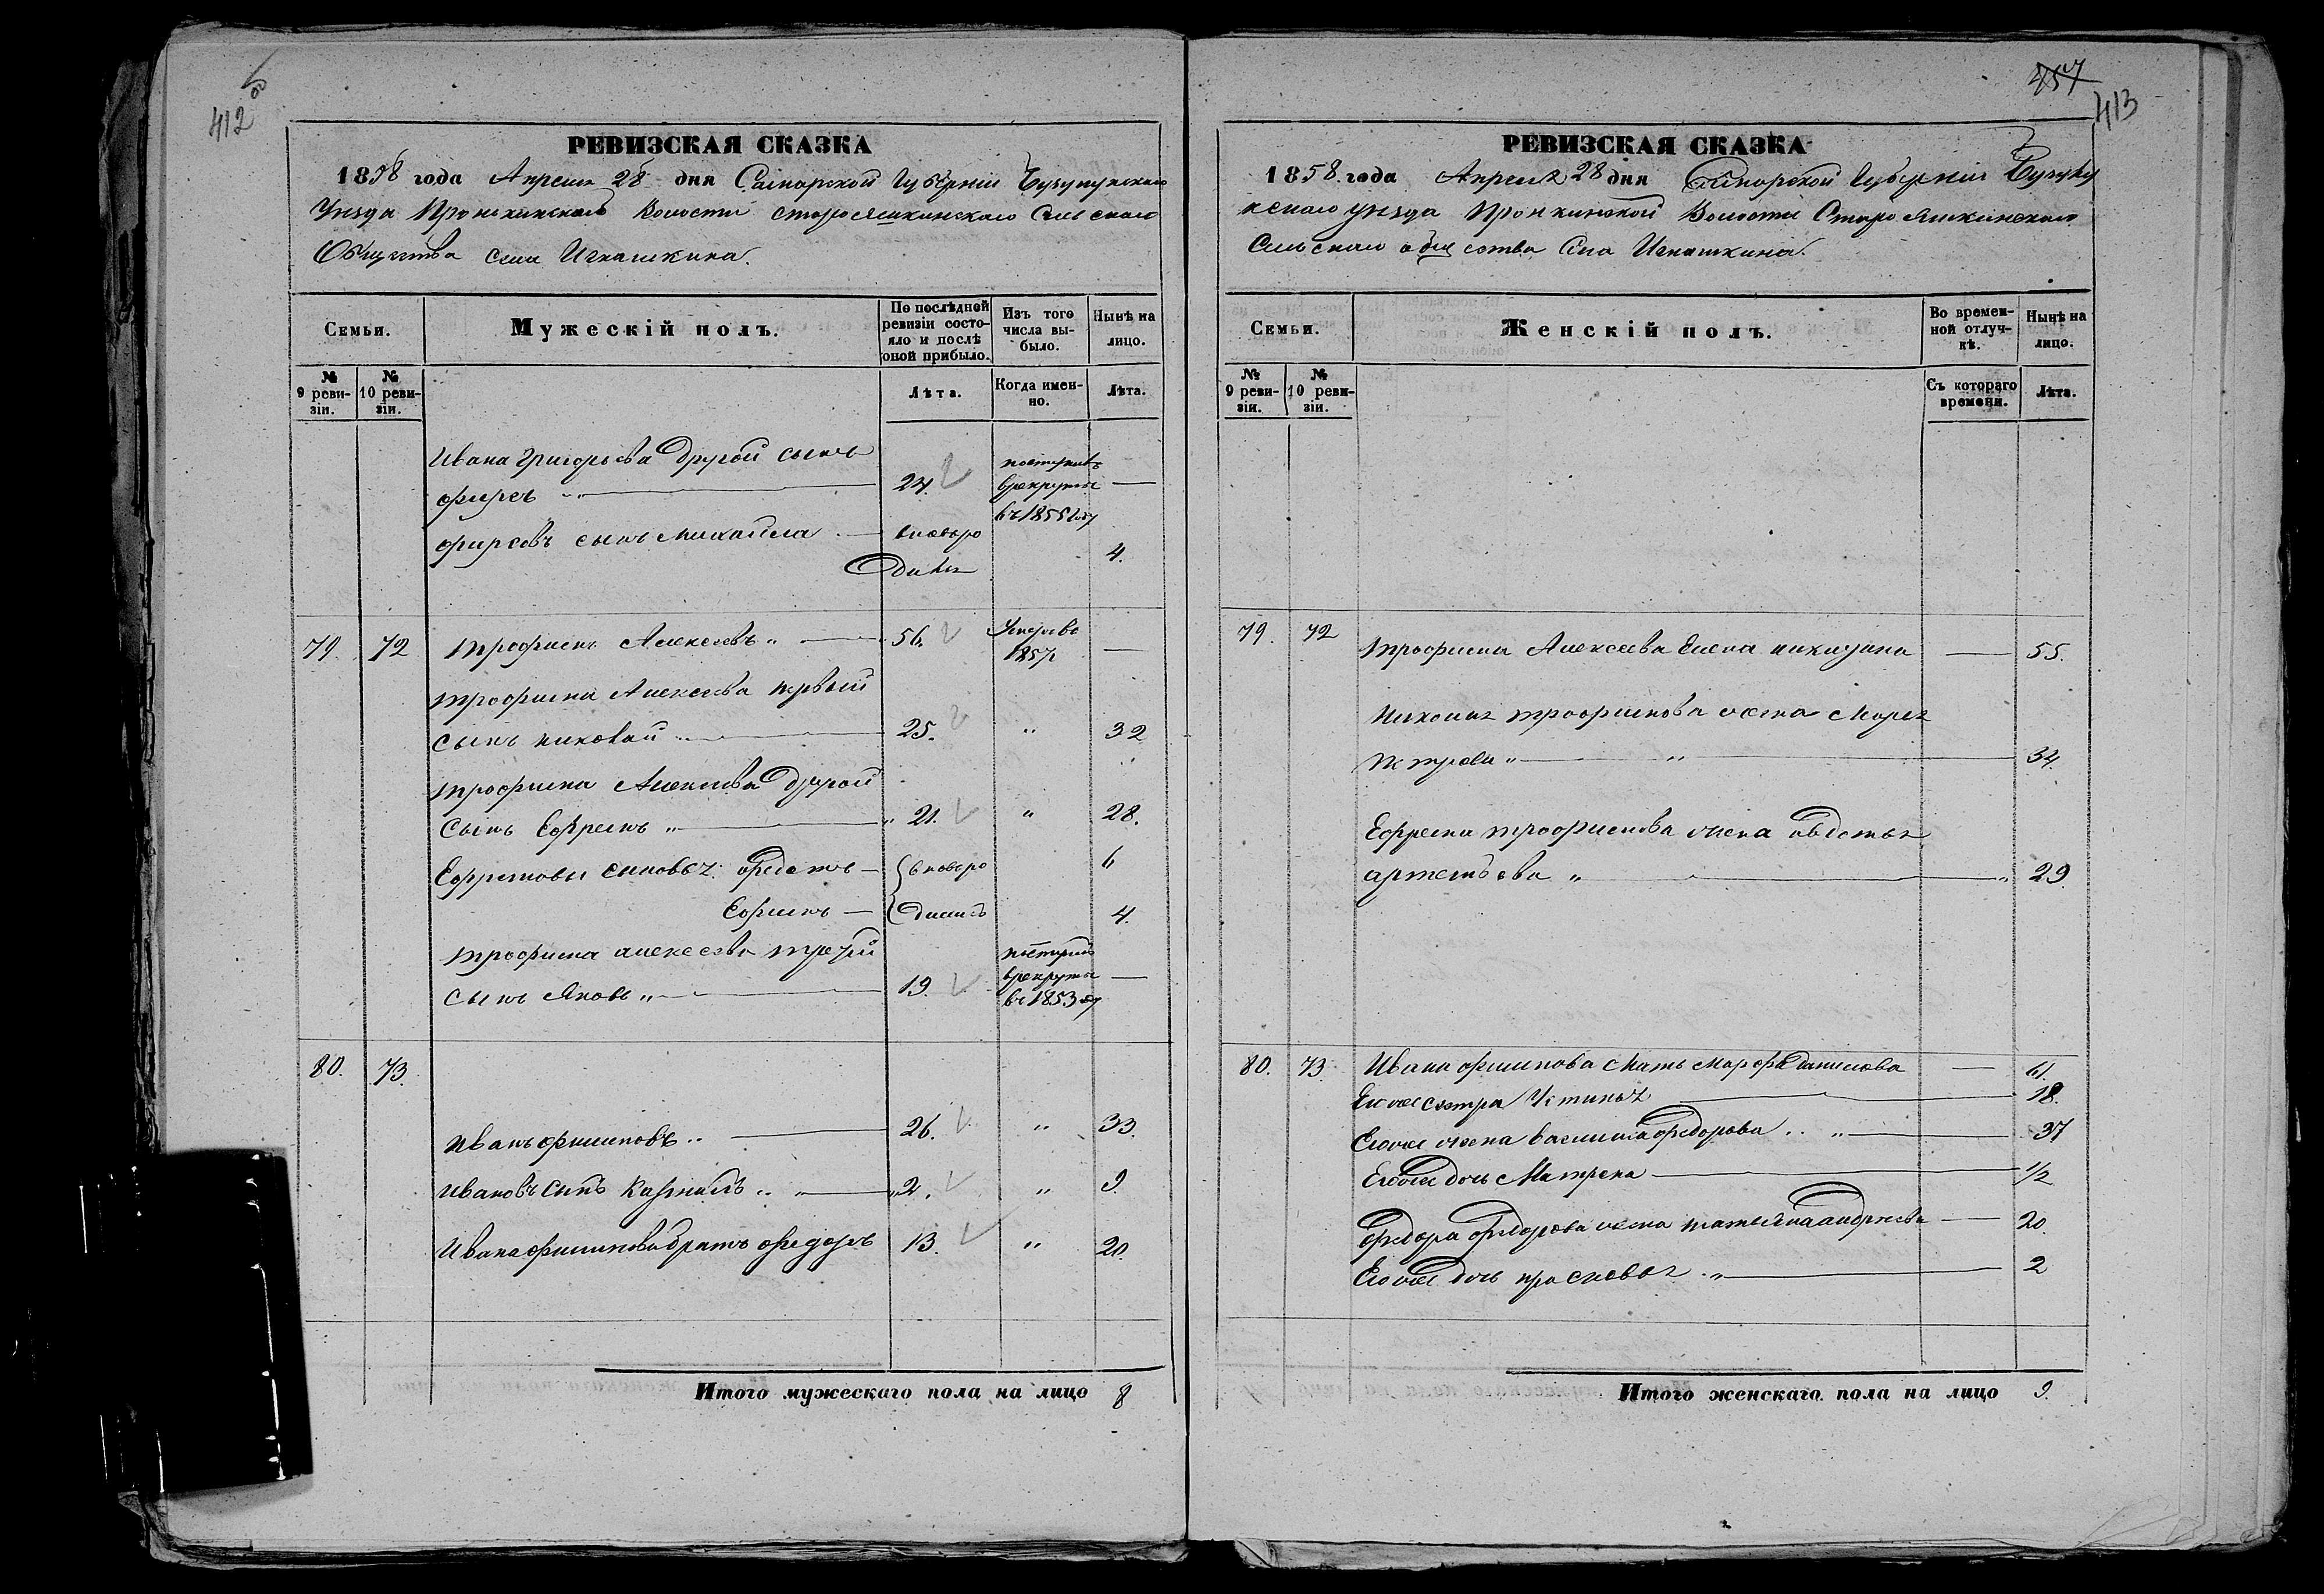 412
РЕВИЗСКАЯ СКАЗКА
1858 года Апреля 28 дня Самарской Губернiи Бузулукскаго
Уезда Пронькинской Волости старояшкинскаго Сельскаго
Общества села Игнашкина.
Семьи.
Мужескiй полъ.
По послѣдней ревизiи состояло и послѣ оной прибыло.
Изъ того числа выбыло.
Нынѣ на лицо.
№ 9 ревизiи.
№ 10 ревизiи.
Лѣта.
Когда именно.
Лѣта.
Ивана Григорьева другой сынъ поступилъ
фирсъ " 24. врекруты —
въ 1855 году
фирсовъ сынъ Михайла — вновьро
дился 4.
79. 72 трофимъ Алексеевъ " — 56. Умеръ въ —
1857
трофима Алексеева первый
сынъ николай 25. " 32
трофима Алексеева другой
сынъ Ефремъ " " 21. " 28.
Ефремовы сыновья федотъ — вновьро 6
Ефимъ — дились 4.
трофима алексеева третiй поступилъ
сынъ Яковъ " 19. врекруты —
въ 1853 году
80. 73.
Иванъ филиповъ " — 26. " 33.
Ивановъ сынъ " — 2. " 9.
Ивана филипова братъ федоръ 13. " 20.
Итого мужескаго пола на лицо 8
457
413
РЕВИЗСКАЯ СКАЗКА
1858 года Апреля 28 дня Самарской Губернiи Бузулу
кскаго уезда Пронькинской Волости Старо яшкинскаго
Сельскаго общества Села Игнашкина.
Семьи.
Женскiй полъ.
Во временной отлучкѣ.
Нынѣ на лицо.
№ 9 ревизiи.
№ 10 ревизiи.
Съ котораго времени.
Лѣта.
79. 72 трофима Алексеева Елена никитина — 55.
Николая трофимова жена Марья
петрова " " — 34.
Ефрема трофимова жена авдотья
артемьева " — " 29.
80. 73. Ивана филипова мать марфа данилова — 61.
Его же сестра Устинья — 18.
Его же жена василиса федорова " — 37
Его же дочь Матрена — 1/2
федора федорова жена татьяна андреева — 20.
Его же дочь прасковья " — 2
Итого женскаго пола на лицо 9.